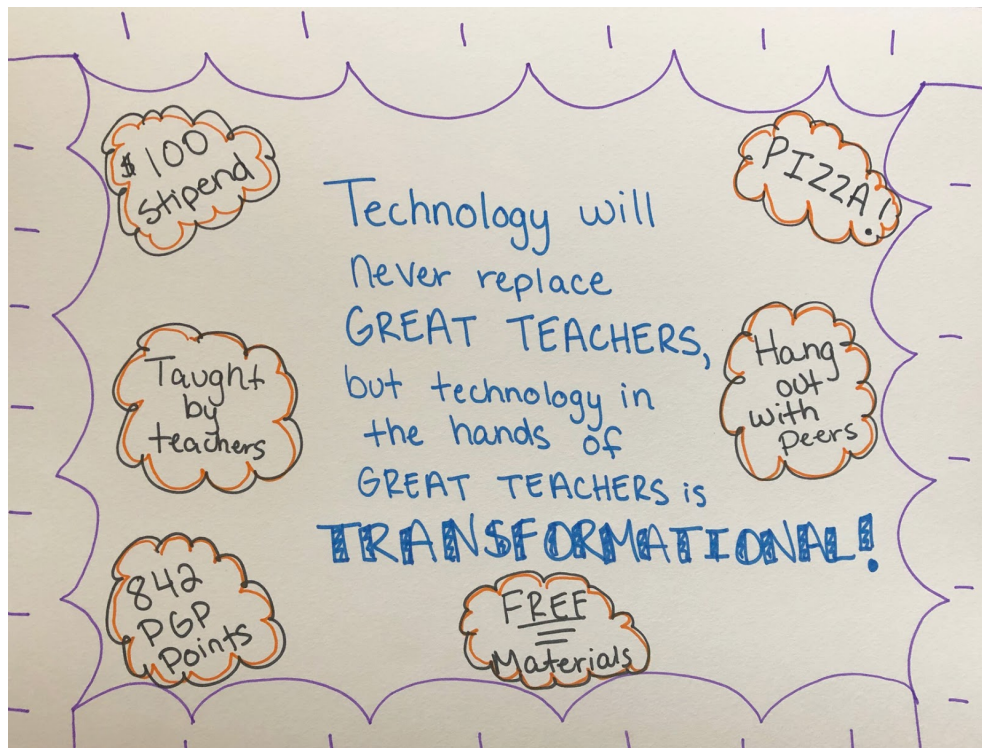 $100
Stipend
PIZZA!
Technology will
never replace
GREAT TEACHERS,
but technology in
the hands of
GREAT TEACHERS is
TRANSFORMATIONAL!
Taught
by
teachers
Hang
out
with
Peers
842
PGP
Points
FREE
Materials